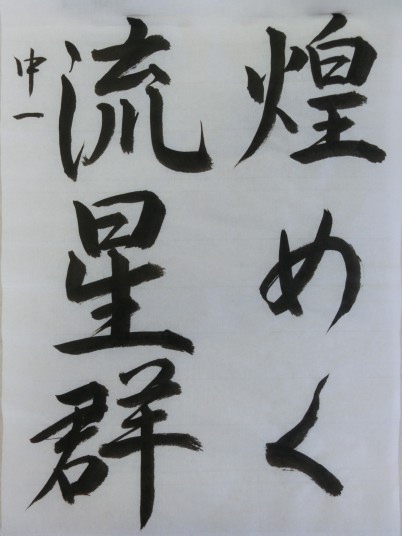 煌めく
流星群
中一